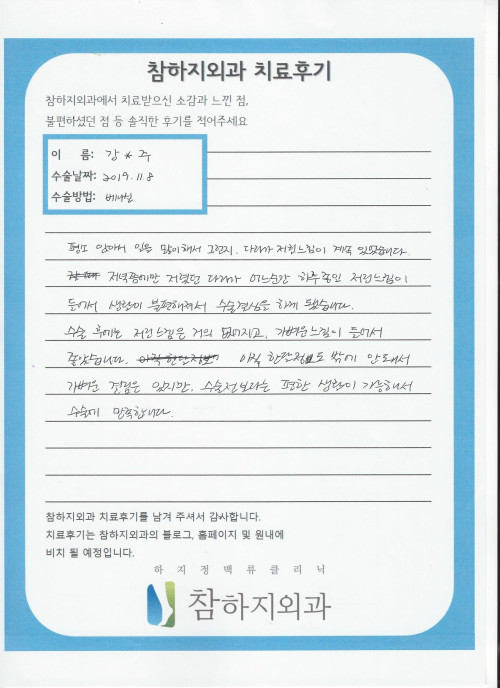 참하지외과 치료후기
참하지외과에서 치료받으신 소감과 느낀 점,
불편하셨던 점 등 솔직한 후기를 적어주세요
이 름: 강*주
수술날짜: 2019.11.8
수술방법: 베나실
평소 앉아서 일을 많이해서 그런지, 다리가 저린느낌이 계속 있었습니다.
저녁쯤에만 저렸던 다리가 어느순간 하루죽인 저린느낌이
들어서 생활이 불편해져서 수술결심을 하게 됐습니다.
수술 후에는 저린느낌은 거의 없어지고, 가벼운느낌이 들어서
좋았습니다. 아직한단정보 아직 한달정도 밖에 안돼서
가벼운 경험은 있지만, 수술전보다는 편한 생활이 가능해서
수술에 만족합니다.
참하지외과 치료후기를 남겨 주셔서 감사합니다.
치료후기는 참하지외과의 블로그, 홈페이지 및 원내에
비치 될 예정입니다.
하지정맥류클리닉
참하지외과